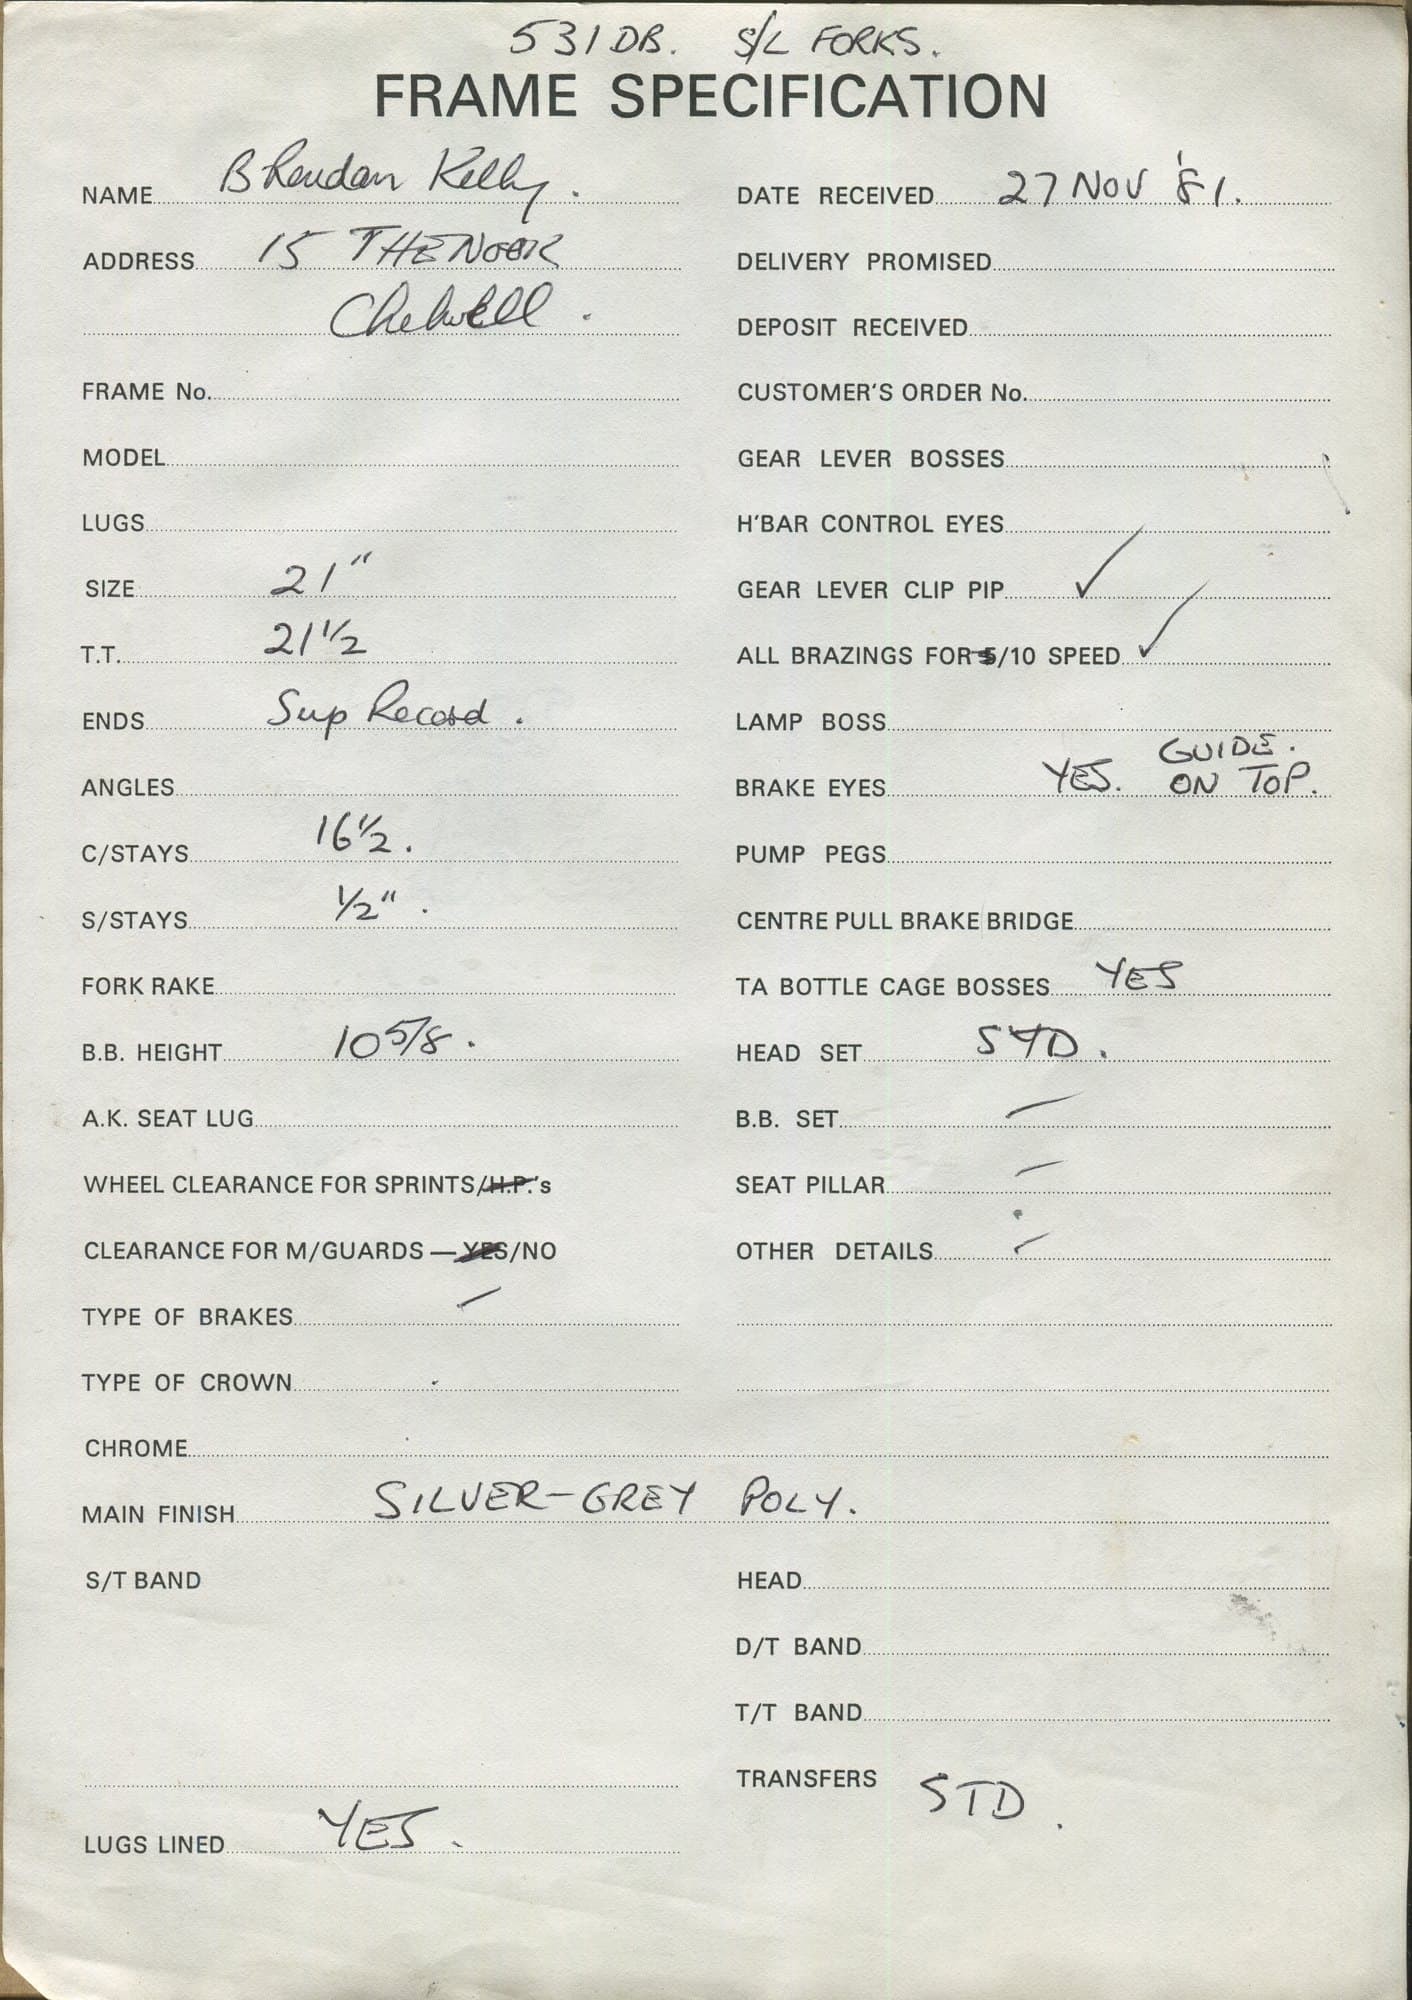 531 DB. S/L FORKS.
FRAME SPECIFICATION
NAME Brendan Kelly.
ADDRESS 15 THE NOOK
Chelwell.
FRAME No.
MODEL
LUGS
SIZE 21"
T.T. 21 1/2
ENDS Sup Record.
ANGLES
C/STAYS 16 1/2.
S/STAYS 1/2".
FORK RAKE
B.B. HEIGHT 10 5/8.
A.K. SEAT LUG
WHEEL CLEARANCE FOR SPRINTS/H.P.'s
CLEARANCE FOR M/GUARDS — YES/NO
TYPE OF BRAKES —
TYPE OF CROWN
DATE RECEIVED 27 NOV '81.
DELIVERY PROMISED
DEPOSIT RECEIVED
CUSTOMER'S ORDER No.
GEAR LEVER BOSSES
H'BAR CONTROL EYES
GEAR LEVER CLIP PIP ✓
ALL BRAZINGS FOR 5/10 SPEED ✓
LAMP BOSS
BRAKE EYES YES. GUIDE.
ON TOP.
PUMP PEGS
CENTRE PULL BRAKE BRIDGE
TA BOTTLE CAGE BOSSES YES
HEAD SET STD.
B.B. SET —
SEAT PILLAR —
OTHER DETAILS —
CHROME
MAIN FINISH SILVER-GREY POLY.
S/T BAND
LUGS LINED YES.
HEAD
D/T BAND
T/T BAND
TRANSFERS STD.